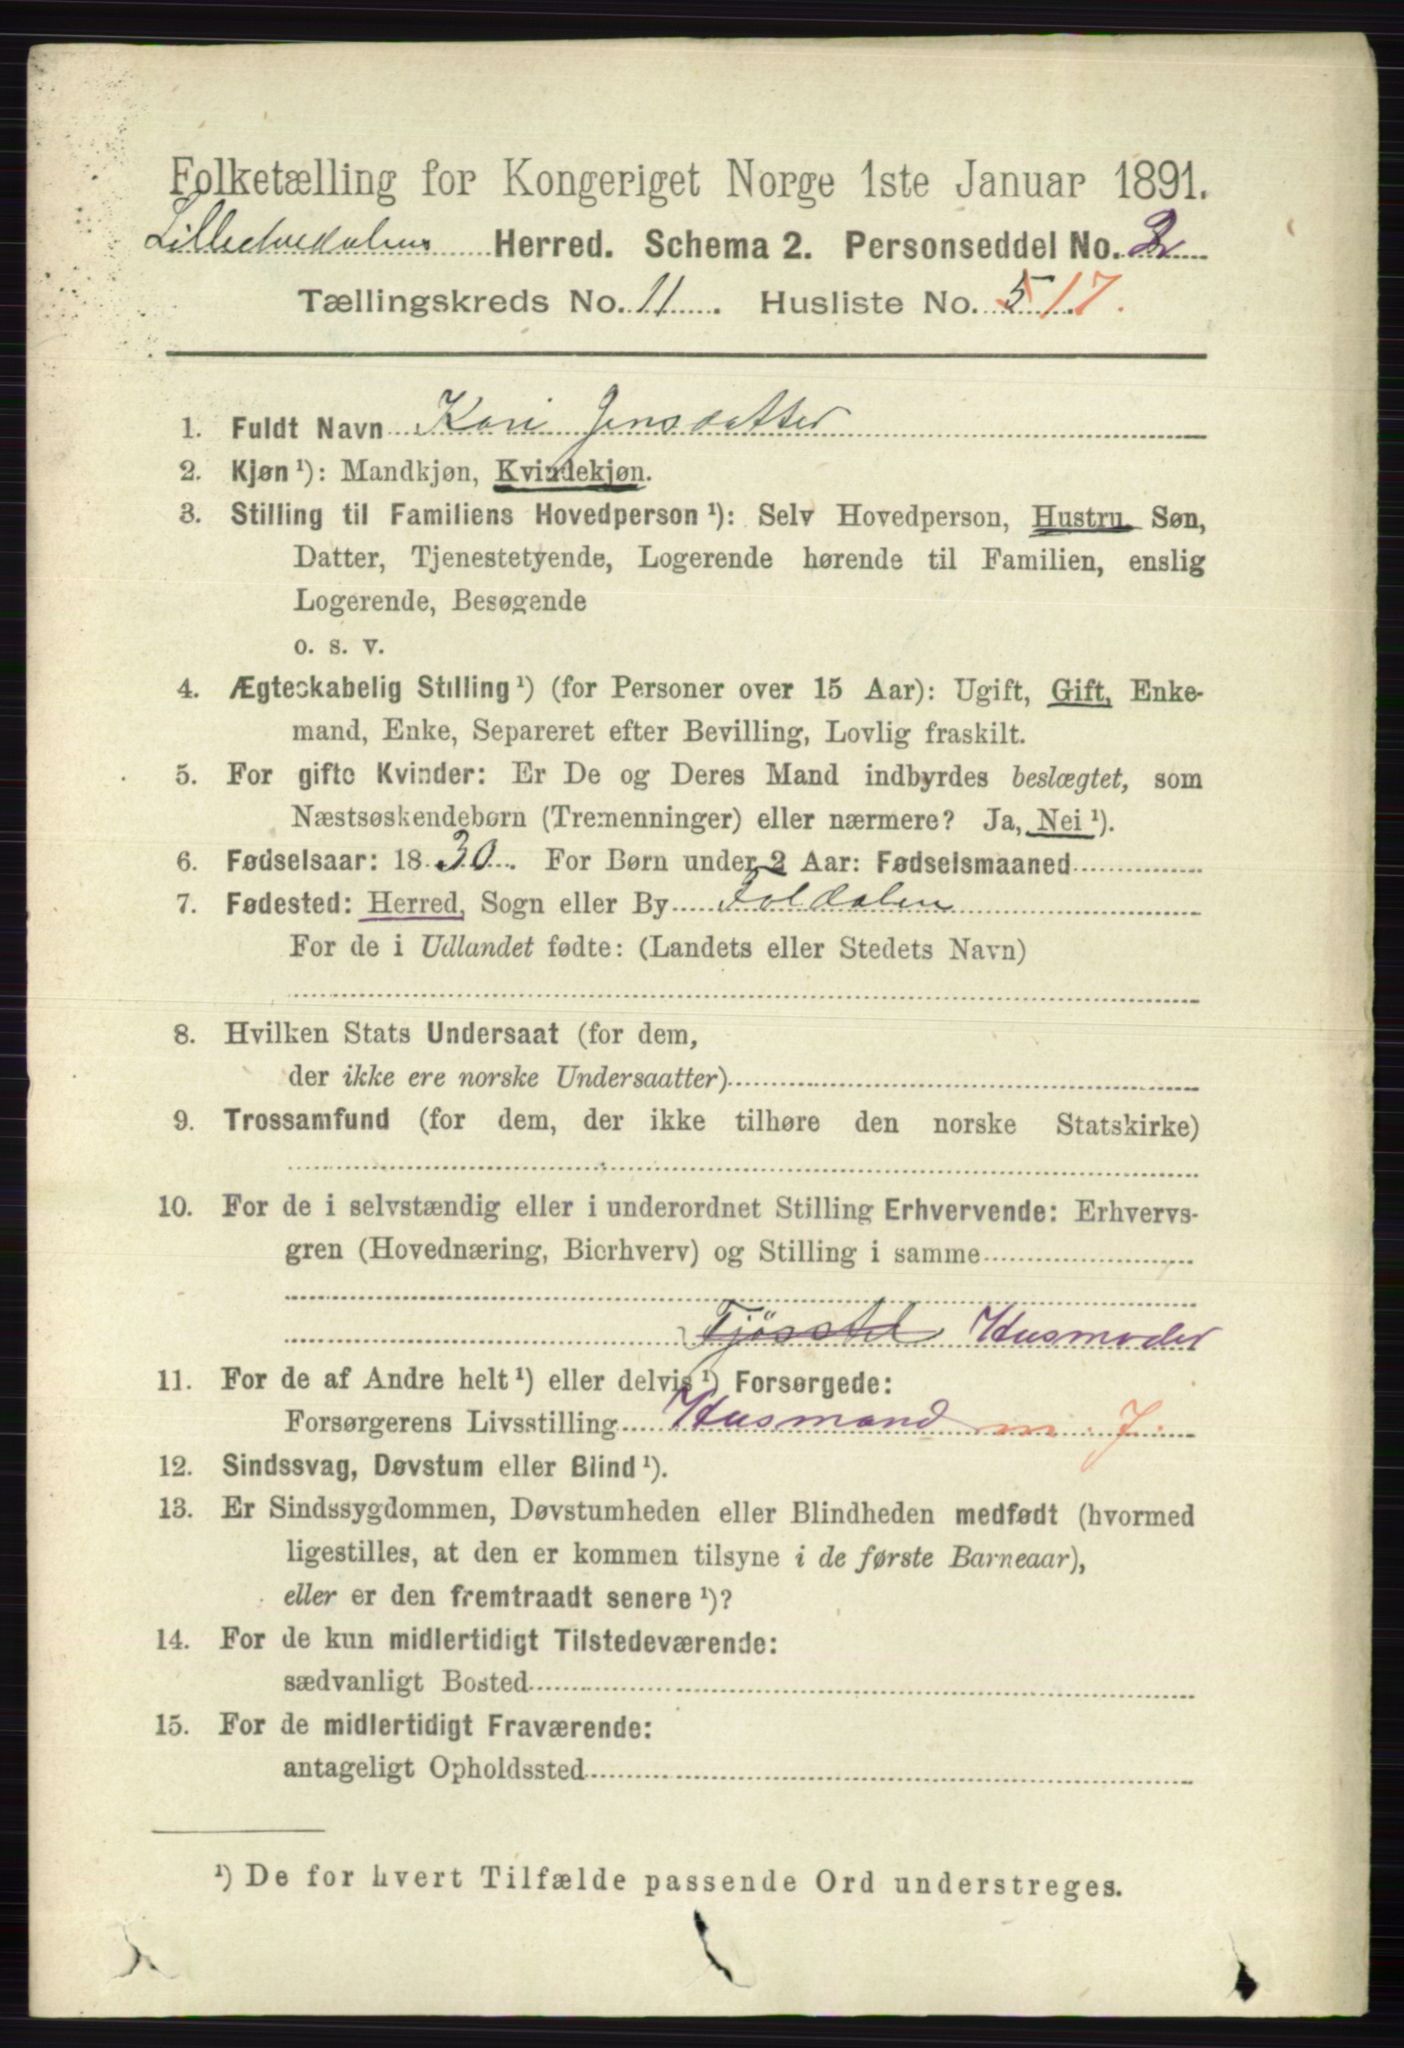 Folketælling for Kongeriget Norge 1ste Januar 1891.
Lilleelvedalens Herred. Schema 2. Personseddel No. 2
Tællingskreds No. 11. Husliste No. 5 17.
1. Fuldt Navn Kari Jensdatter
2. Kjøn ¹): Mandkjøn, Kvindekjøn.
3. Stilling til Familiens Hovedperson ¹): Selv Hovedperson, Hustru, Søn,
Datter, Tjenestetyende, Logerende hørende til Familien, enslig
Logerende, Besøgende
o. s. v.
4. Ægteskabelig Stilling ¹) (for Personer over 15 Aar): Ugift, Gift, Enke-
mand, Enke, Separeret efter Bevilling, Lovlig fraskilt.
5. For gifte Kvinder: Er De og Deres Mand indbyrdes beslægtet, som
Næstsøskendebørn (Tremenninger) eller nærmere? Ja, Nei ¹).
6. Fødselsaar: 1830. For Børn under 2 Aar: Fødselsmaaned
7. Fødested: Herred, Sogn eller By Foldalen
For de i Udlandet fødte: (Landets eller Stedets Navn)
8. Hvilken Stats Undersaat (for dem,
der ikke ere norske Undersaatter)
9. Trossamfund (for dem, der ikke tilhøre den norske Statskirke)
10. For de i selvstændig eller i underordnet Stilling Erhvervende: Erhvervs-
gren (Hovednæring, Bierhverv) og Stilling i samme
Husmoder
11. For de af Andre helt ¹) eller delvis ¹) Forsørgede:
Forsørgerens Livsstilling Husmand m. J.
12. Sindssvag, Døvstum eller Blind ¹).
13. Er Sindssygdommen, Døvstumheden eller Blindheden medfødt (hvormed
ligestilles, at den er kommen tilsyne i de første Barneaar),
eller er den fremtraadt senere ¹)?
14. For de kun midlertidigt Tilstedeværende:
sædvanligt Bosted
15. For de midlertidigt Fraværende:
antageligt Opholdssted
¹) De for hvert Tilfælde passende Ord understreges.